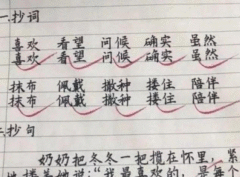 一.抄词
喜欢 看望 问候 确实 虽然
喜欢 看望 问候 确实 虽然
抹布 佩戴 撒种 搂住 陪伴
抹布 佩戴 撒种 搂住 陪伴
二.抄句
奶奶把冬冬一把揽在怀里,紧
说:“我最喜欢的,是每个